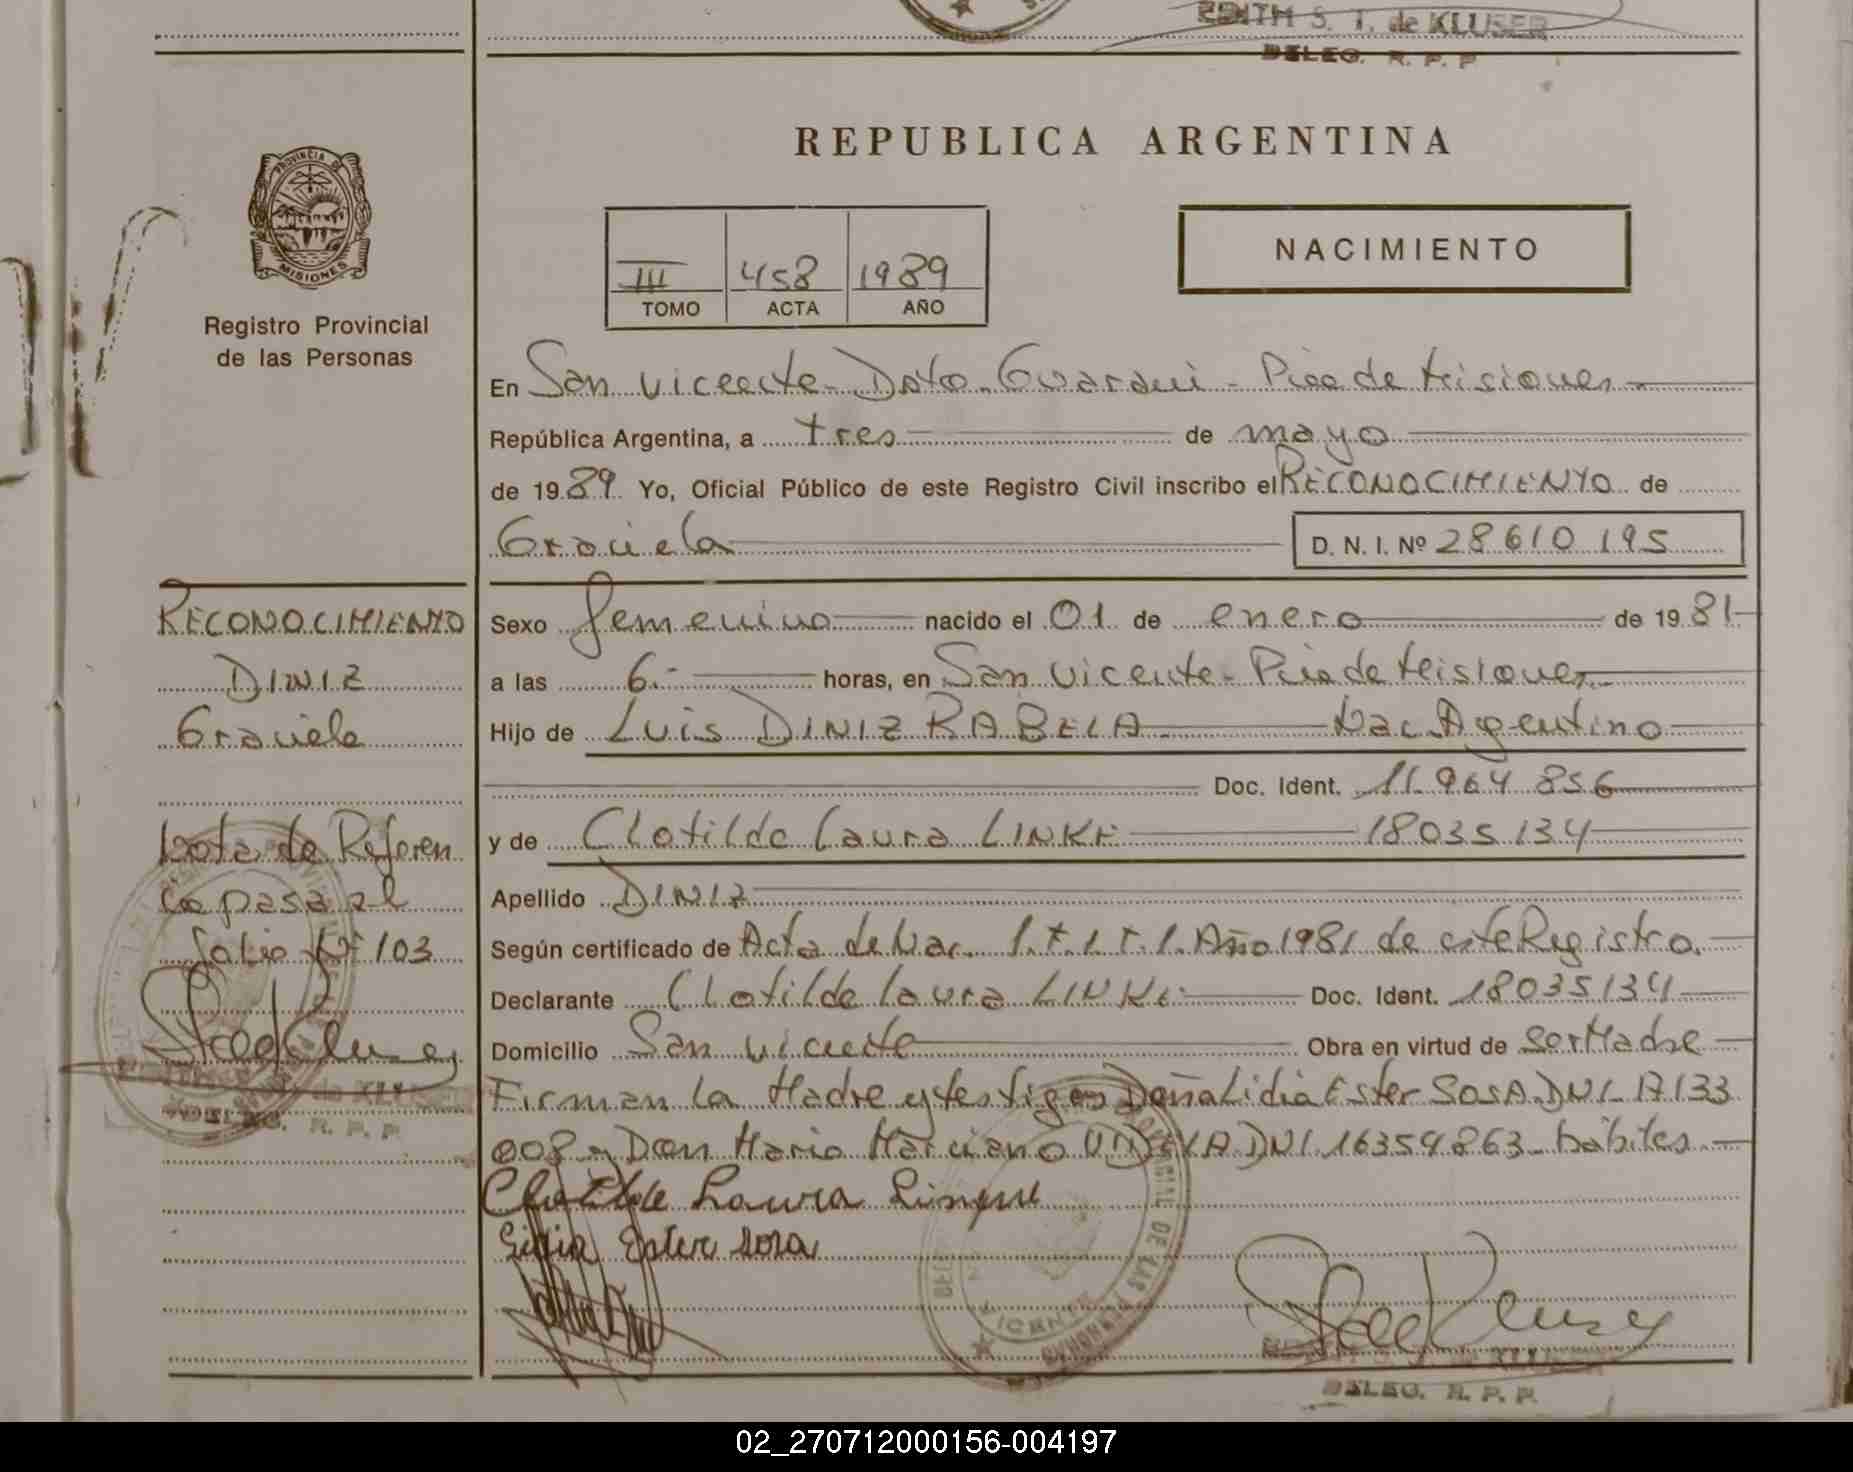 EDITH S. T. de KLUSER
DELEG. R. P. P.
REPUBLICA ARGENTINA
PROVINCIA DE
MISIONES
Registro Provincial
de las Personas
III 458 1989
TOMO ACTA AÑO
NACIMIENTO
En San Vicente - Dpto. Guaraní - Pcia de Misiones
República Argentina, a tres de mayo
de 1989 Yo, Oficial Público de este Registro Civil inscribo el RECONOCIMIENTO de
Graciela D. N. I. Nº 28610195
RECONOCIMIENTO
DINIZ
Graciela
Nota de Referen
cia pasa al
folio Nº 103
DELEG. R. P. P.
Sexo femenino nacido el 01 de enero de 1981
a las 6.- horas, en San Vicente - Pcia de Misiones
Hijo de Luis DINIZ RABELA Nac. Argentino
Doc. Ident. 11.964.856
y de Clotilde Laura LINKE 18035134
Apellido DINIZ
Según certificado de Acta de Nac. Año 1981 de este Registro.
Declarante Clotilde Laura LINKE Doc. Ident. 18035134
Domicilio San Vicente Obra en virtud de ser Madre
Firman la Madre y testigos Doña Lidia Ester SOSA DNI. 17133
008 y Don Mario Marciano DNI. 16354863 hábiles.
Clotilde Laura
Lidia Ester Sosa
VICENTE
DE LAS PERSONAS
DELEG. R. P. P.
02_270712000156-004197